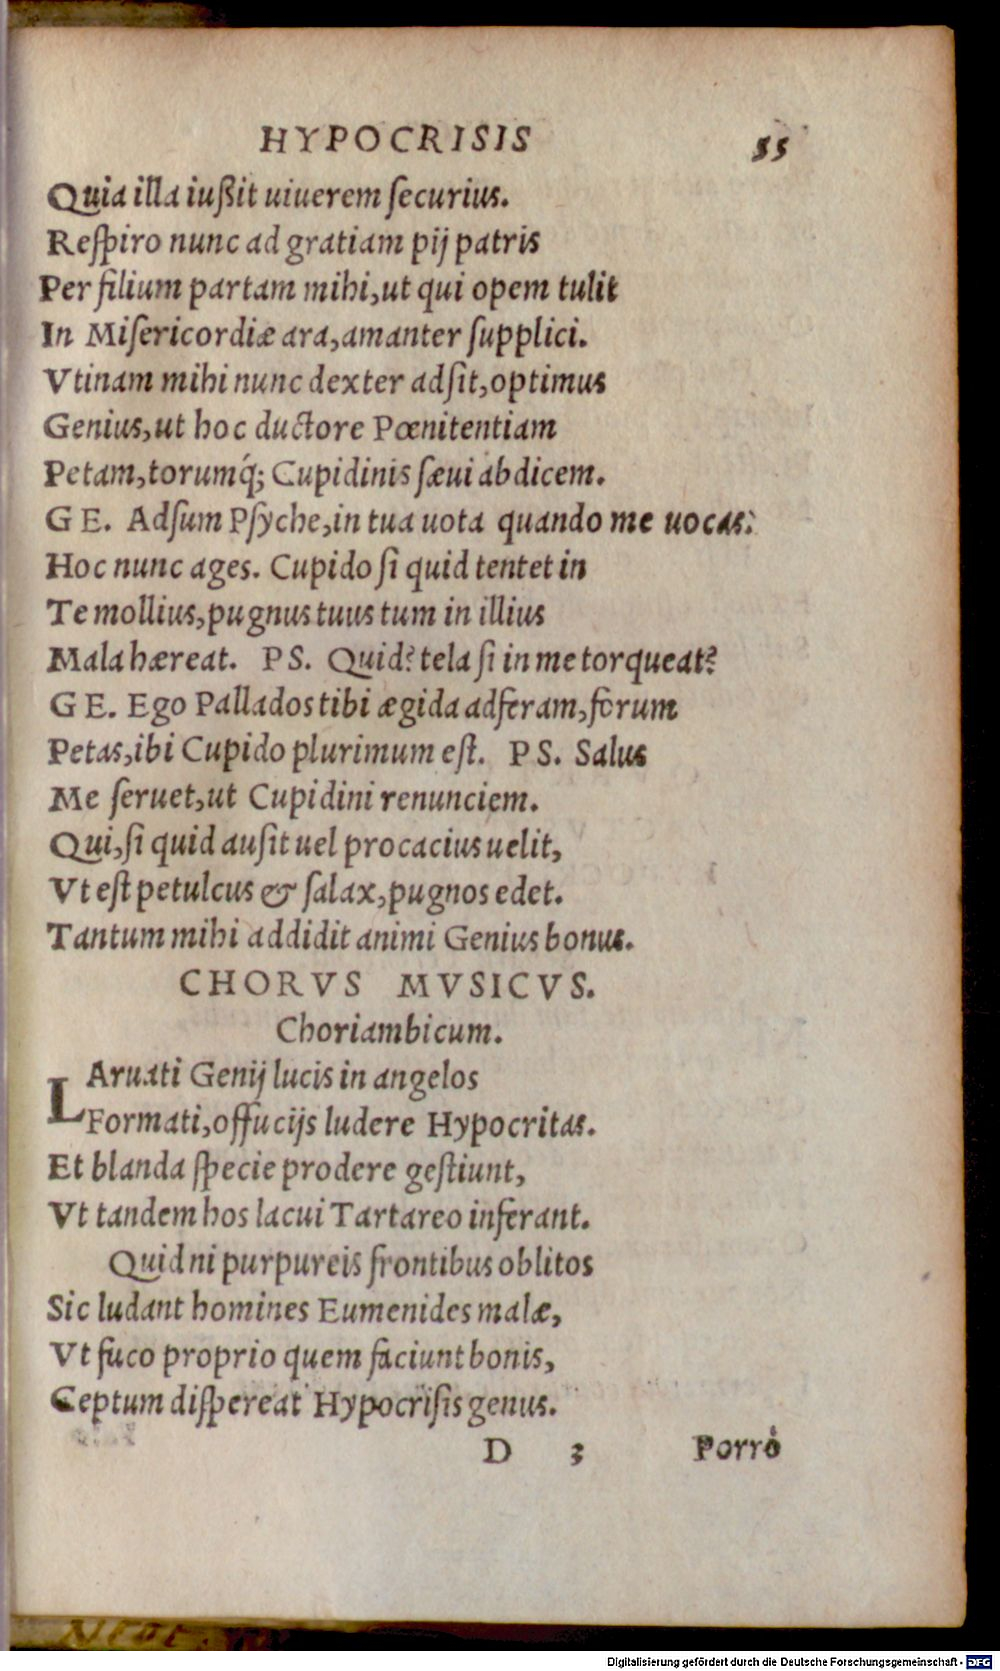 HYPOCRISIS 55
Quia illa iußit uiuerem ſecurius.
Reſpiro nunc ad gratiam pij patris
Per filium partam mihi,ut qui opem tulit
In Miſericordiæ ara,amanter ſupplici.
Vtinam mihi nunc dexter adſit,optimus
Genius,ut hoc ductore Pœnitentiam
Petam,torumq́; Cupidinis ſæui abdicem.
GE. Adſum Pſyche,in tua uota quando me uocas:
Hoc nunc ages. Cupido ſi quid tentet in
Te mollius,pugnus tuus tum in illius
Mala hæreat. PS. Quid? tela ſi in me torqueat?
GE. Ego Pallados tibi ægida adferam,forum
Petas,ibi Cupido plurimum eſt. PS. Salus
Me ſeruet,ut Cupidini renunciem.
Qui,ſi quid auſit uel procacius uelit,
Vt eſt petulcus & ſalax,pugnos edet.
Tantum mihi addidit animi Genius bonus.
CHORVS MVSICVS.
Choriambicum.
LAruati Genij lucis in angelos
Formati,offucijs ludere Hypocritas.
Et blanda ſpecie prodere geſtiunt,
Vt tandem hos lacui Tartareo inferant.
Quid ni purpureis frontibus oblitos
Sic ludant homines Eumenides malæ,
Vt fuco proprio quem faciunt bonis,
Ceptum diſpereat Hypocriſis genus.
D 3 Porrò
Digitalisierung gefördert durch die Deutsche Forschungsgemeinschaft - DFG